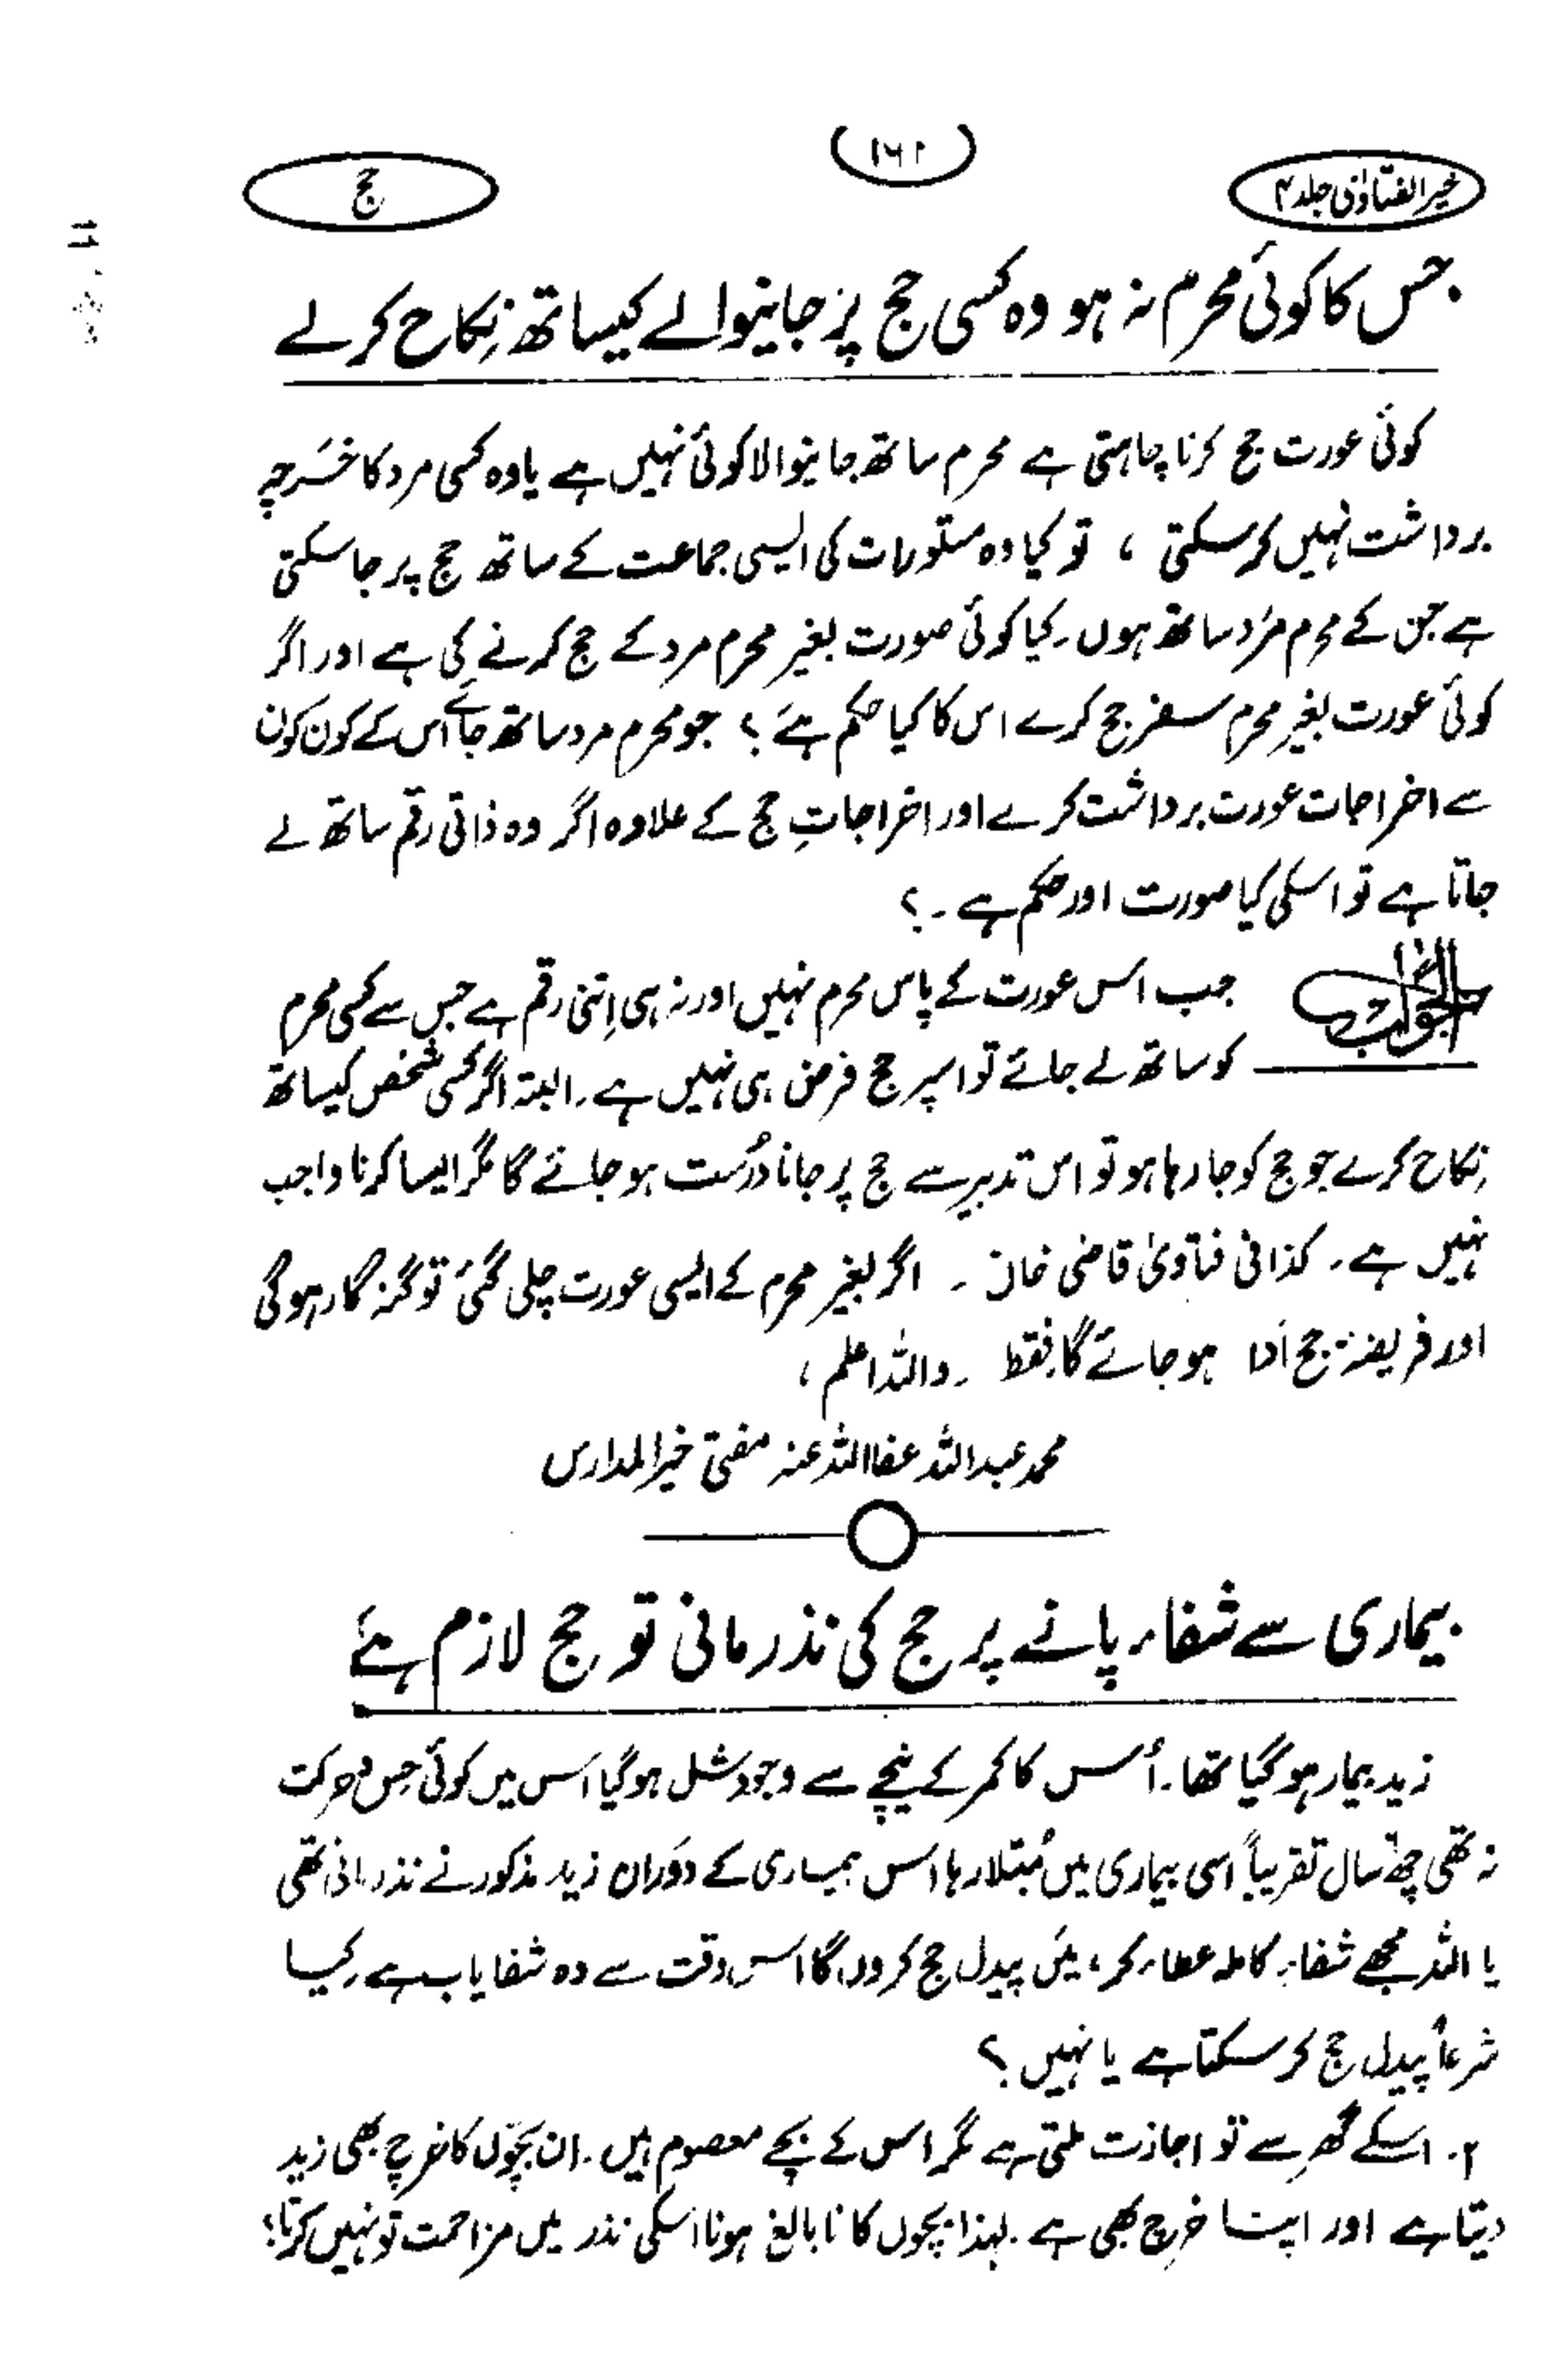 خیر الفتاوٰی جلد ۴
(۱۶۱)
حج
جس کا کوئی محرم نہ ہو وہ کسی حج پر جانیوالے کیساتھ نکاح کرلے
کوئی عورت حج کرنا چاہتی ہے محرم ساتھ جانیوالا کوئی نہیں ہے یا وہ کسی مرد کا خرچہ
برداشت نہیں کرسکتی ، تو کیا وہ مستورات کی ایسی جماعت کے ساتھ حج پر جا سکتی
ہے جن کے محرم مرد ساتھ ہوں ۔ کیا کوئی صورت بغیر محرم مرد کے حج کرنے کی ہے اور اگر
کوئی عورت بغیر محرم سفر حج کرے اس کا کیا حکم ہے ؟ جو محرم مرد ساتھ جائے اس کے کون کون
سے اخراجات عورت برداشت کرے اور اخراجاتِ حج کے علاوہ اگر وہ ذاتی رقم ساتھ لے
جاتا ہے تو اسکی کیا صورت اور حکم ہے ۔ ؟
الجواب جب اس عورت کے پاس محرم نہیں اور نہ ہی اِتنی رقم ہے جس سے کسی محرم
کو ساتھ لے جائے تو اسپر حج فرض ہی نہیں ہے ۔ البتہ اگر کسی شخص کیساتھ
نِکاح کرے جو حج کو جا رہا ہو تو اس تدبیر سے حج پر جانا دُرست ہو جائے گا مگر ایسا کرنا واجب
نہیں ہے ۔ کذا فی فتاویٰ قاضی خان ۔ اگر بغیر محرم کے ایسی عورت چلی گئی تو گنہگار ہوگی
اور فریضۂ حج اَدا ہو جائے گا فقط ۔ واللہ اعلم ،
محمد عبداللہ عفااللہ عنہ مفتی خیر المدارس
بیماری سے شفاء پانے پر حج کی نذر مانی تو حج لازم ہے
زید بیمار ہو گیا تھا ۔ اُس کا کمر کے نیچے سے وجود شل ہوگیا اس میں کوئی حِس و حرکت
نہ تھی چھ سال تقریباً اسی بیماری میں مُبتلا رہا اس بیماری کے دَوران زید مذکور نے نذر مانی تھی
یا اللہ مجھے شفاءِ کاملہ عطاء کر ، میں پیدل حج کروں گا اس وقت سے وہ شفایاب ہے ۔ کیا
شرعاً پیدل حج کر سکتا ہے یا نہیں ؟
۲ ۔ اسکے گھر سے تو اجازت ملتی ہے مگر اس کے بچے معصوم ہیں ۔ ان بچّوں کا خرچ بھی زید
دیتا ہے اور اپنا خرچ بھی ہے ۔ لہذا بچوں کا نابالغ ہونا اسکی نذر میں مزاحمت تو نہیں کرتا ؟